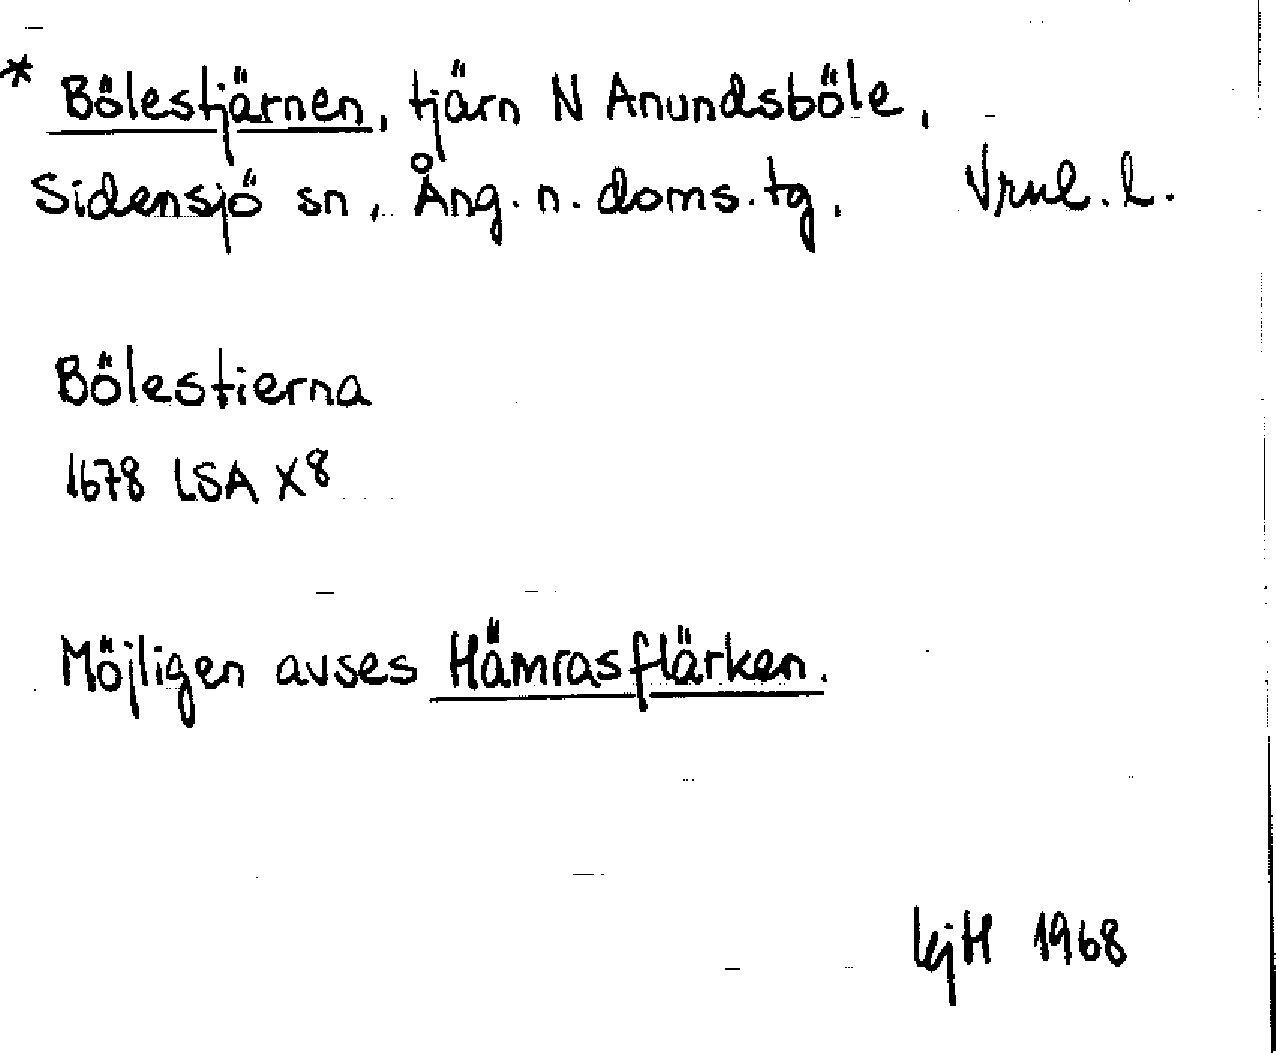 * Bölestjärnen, tjärn N Anundsböle,
Sidensjö sn, Ång. n. doms. tg, Vrnl. l.
Bölestierna
1678 LSA X8
Möjligen avses Hämrasflärken.
kjH 1968